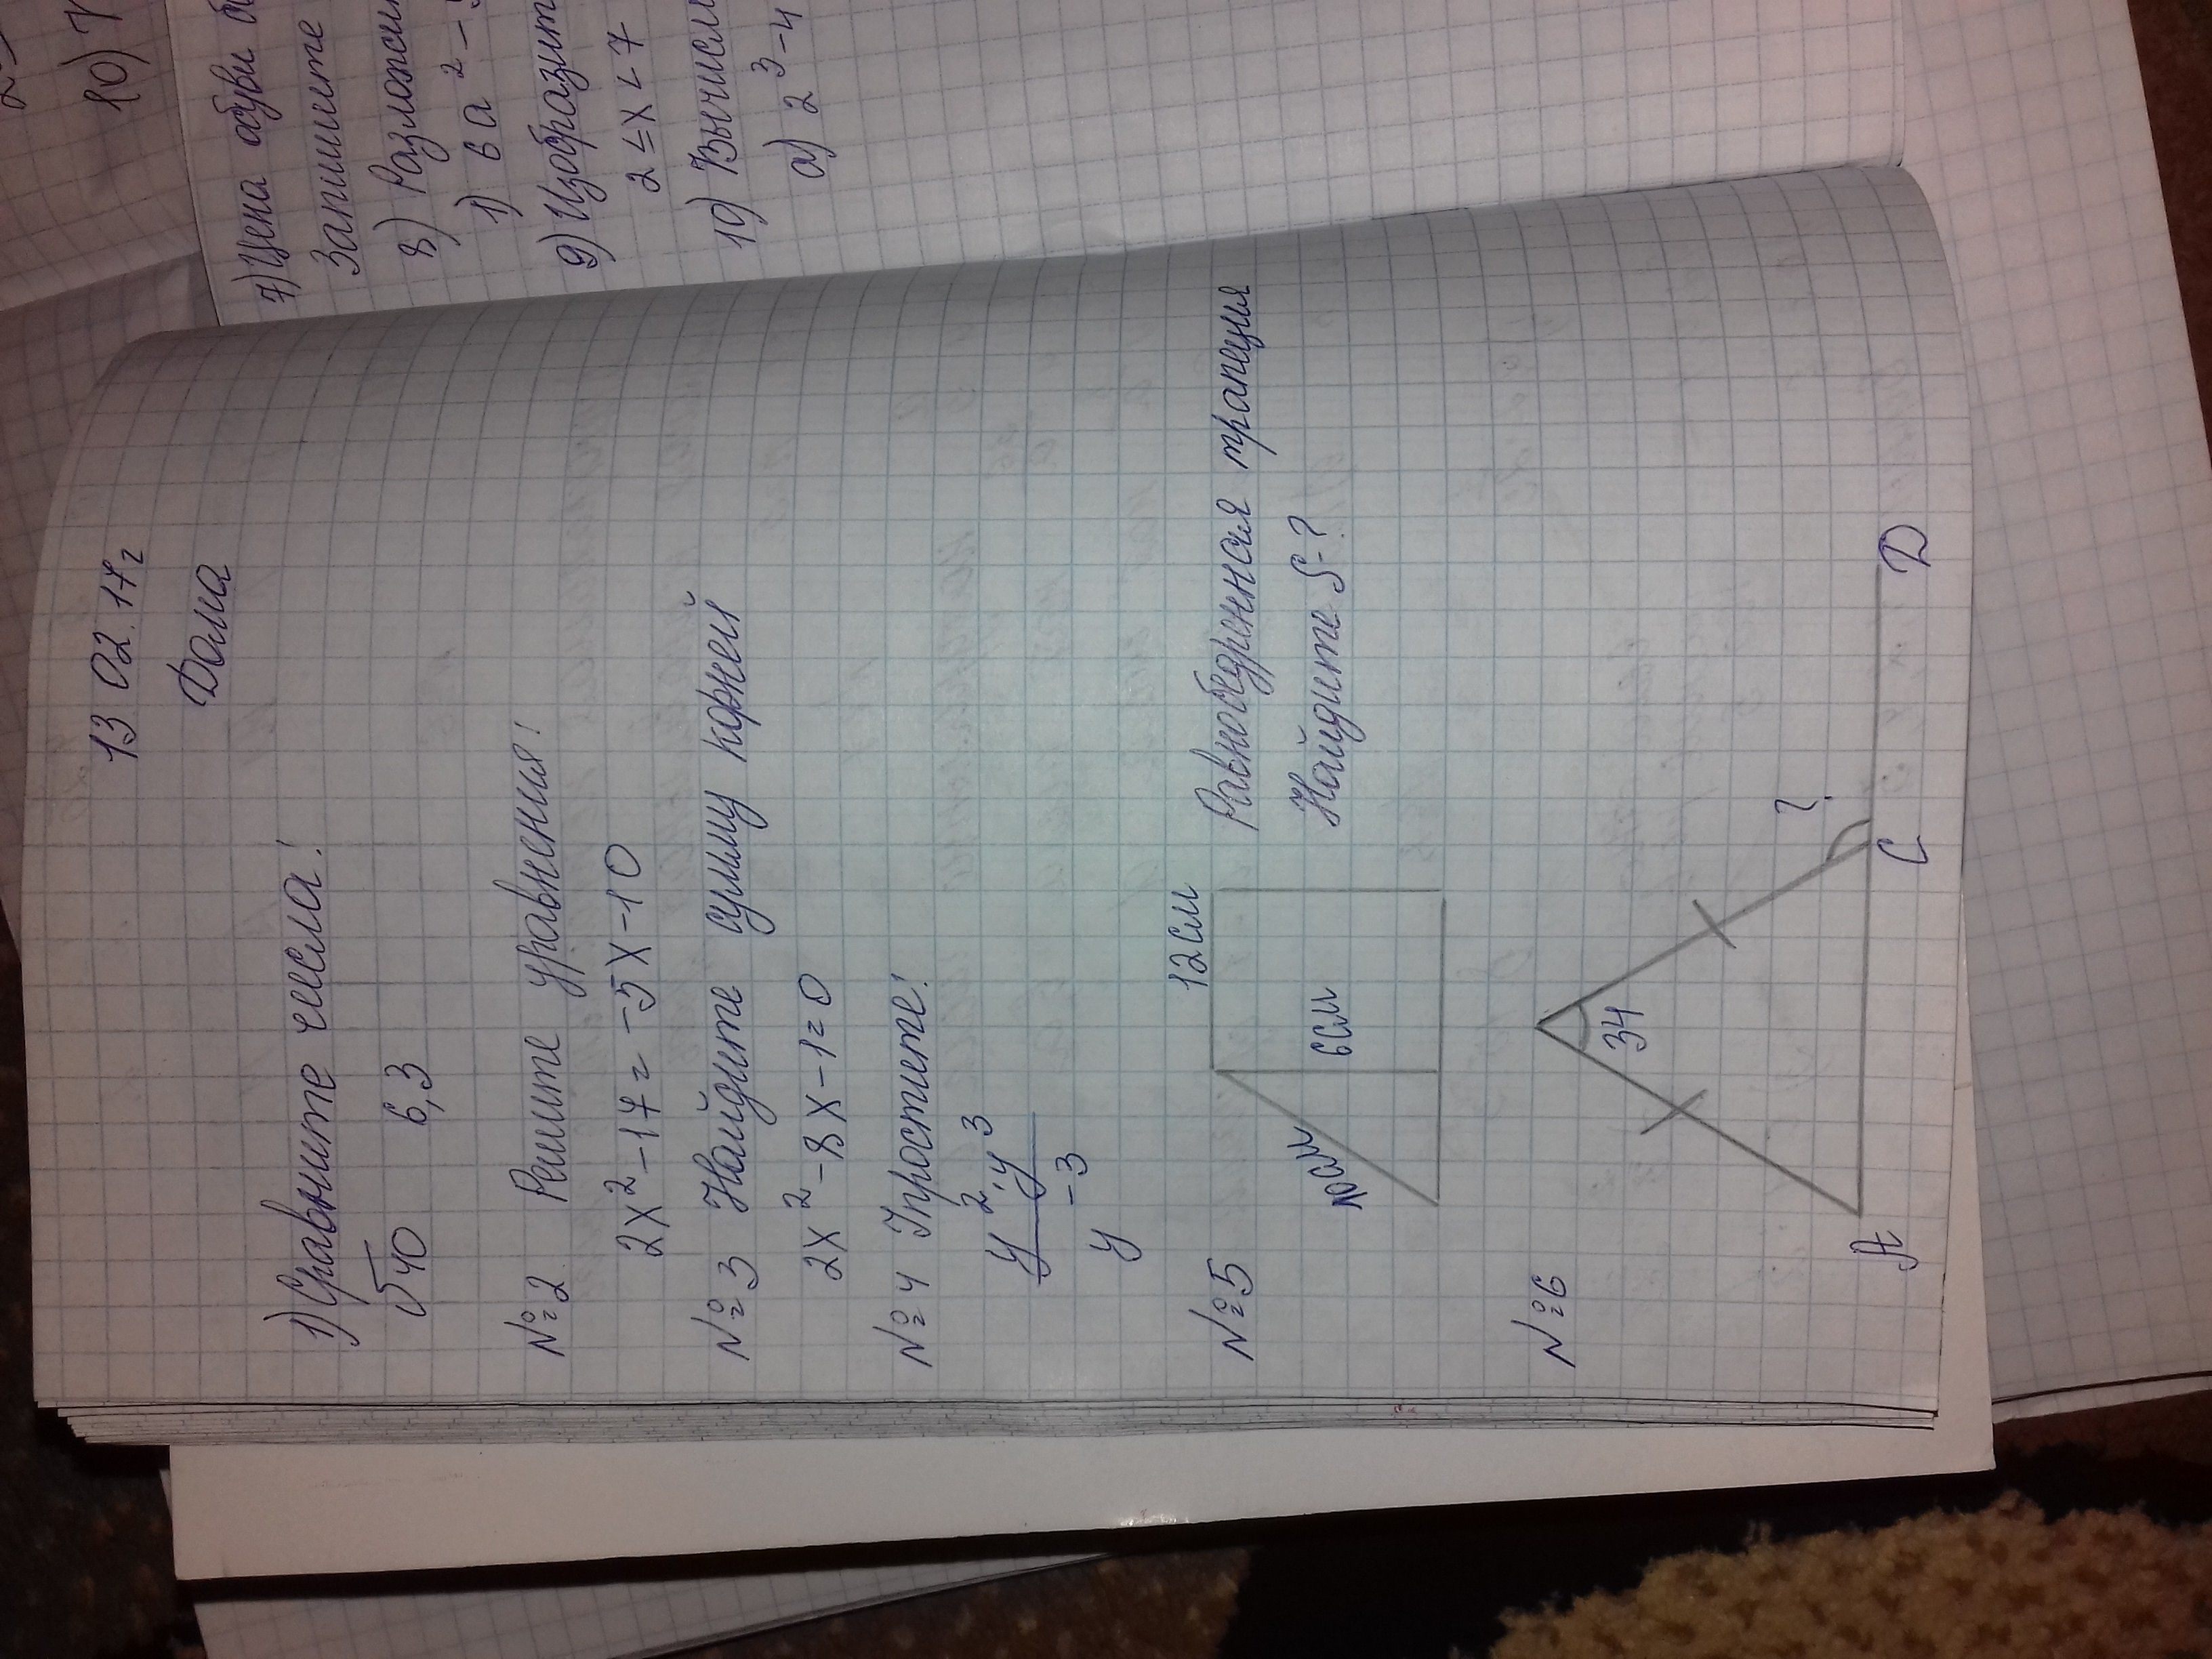 13 02.17г
Дома
1) Сравните числа!
√40 6,3
№2 Решите уравнения!
2x²-17=-5x-10
№3 Найдите сумму корней
2x²-8x-1=0
№4 Упростите!
y²·y³
y⁻³
№5 12см Равнобедренная трапеция
10см 6см Найдите S-?
№6
34
?
А С D
10)
7) Цена обуви
Запишите
8)
1) 6a²-
9) Изобразит
2≤x<7
10) Вычисл
а) 2³-4